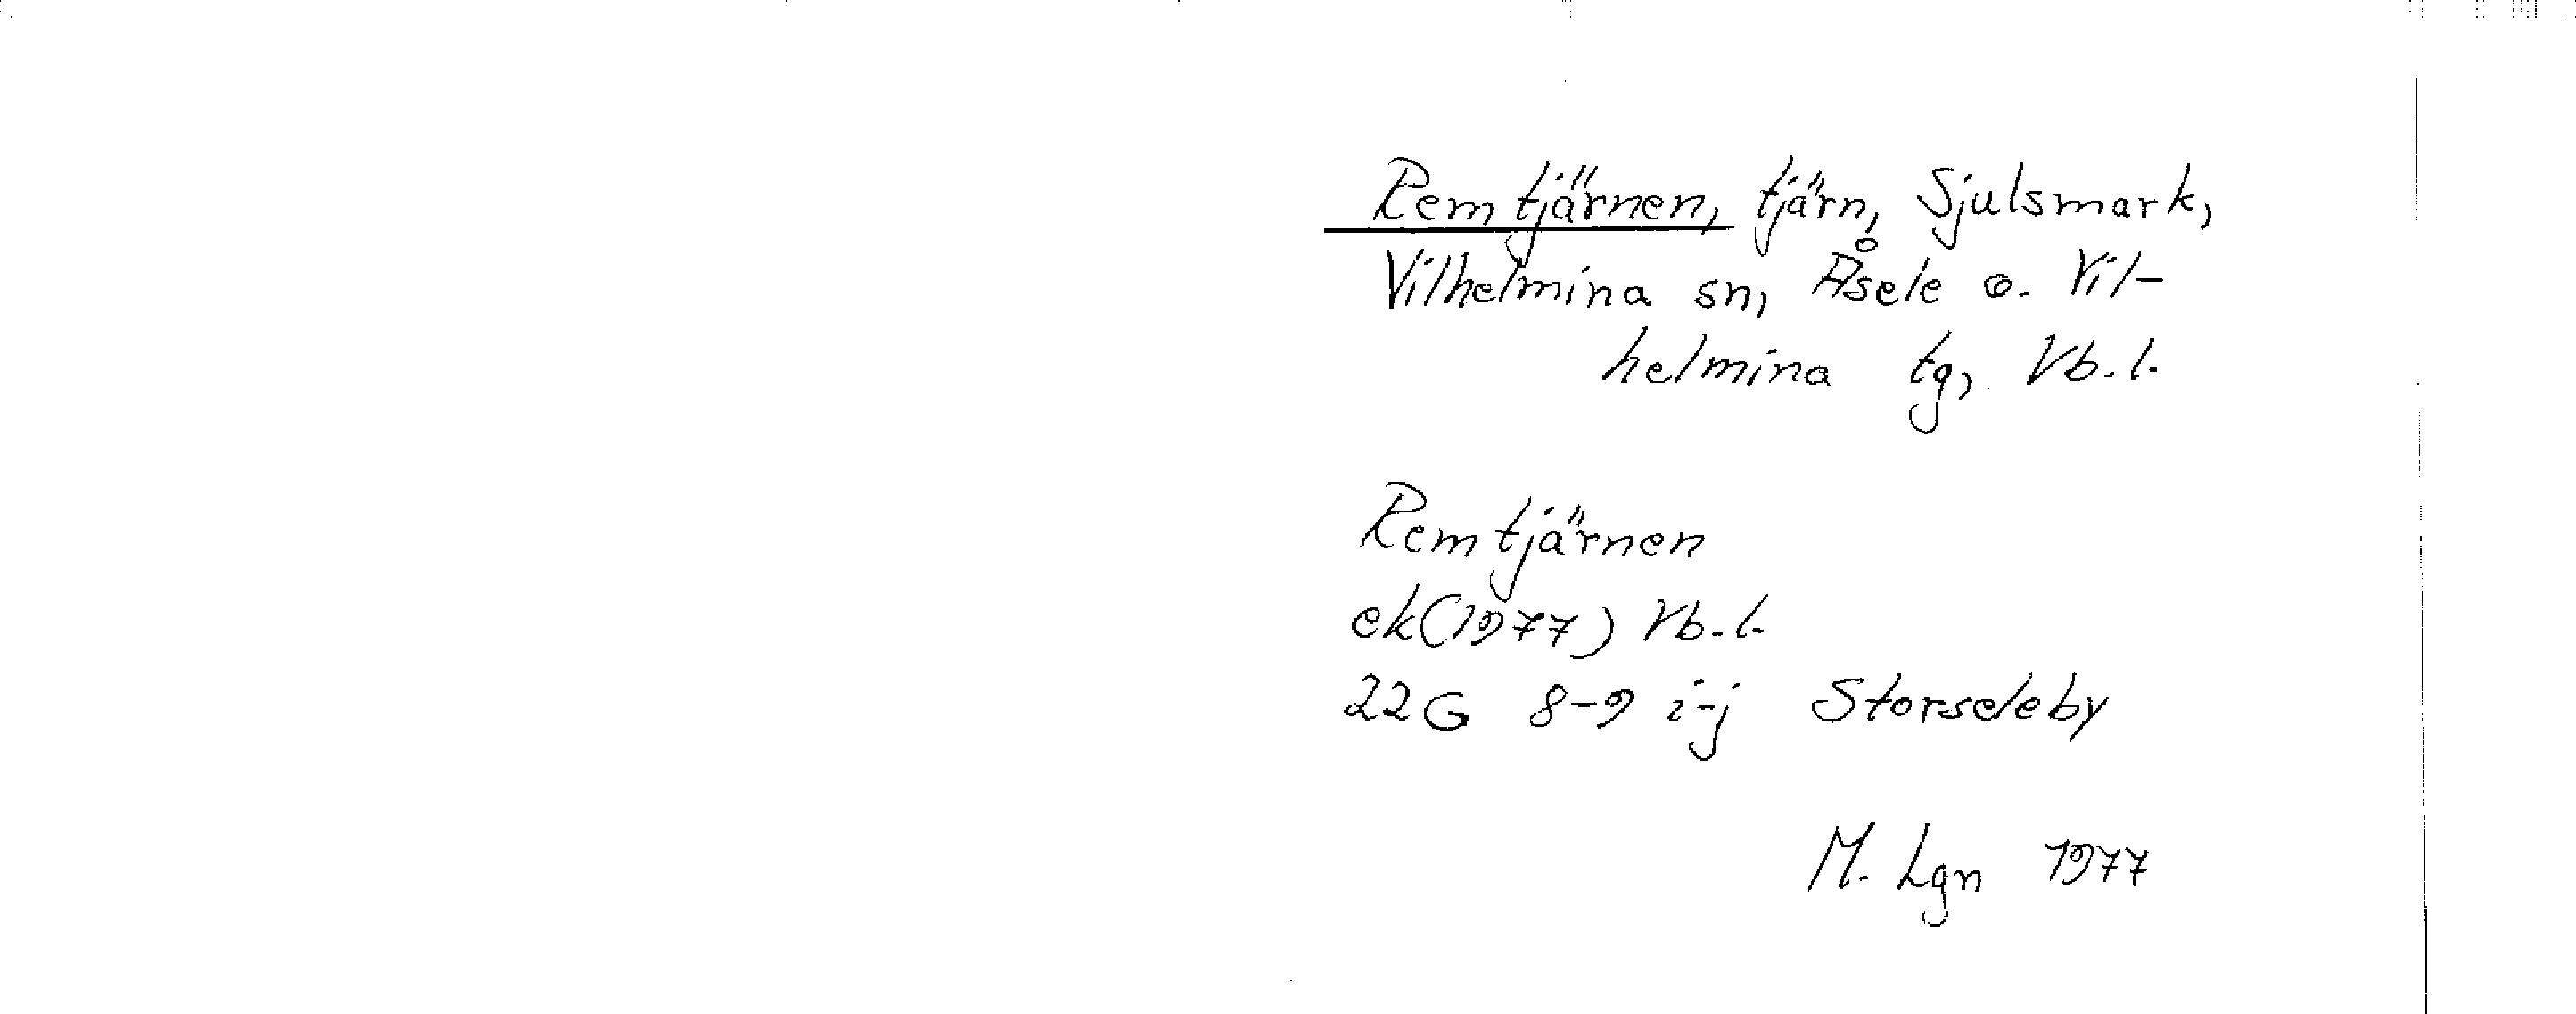 Remtjärnen, tjärn, Sjulsmark,
Vilhelmina sn, Åsele o. Vil-
helmina tg, Vb.l.
Remtjärnen
ek(1977) Vb.l.
22G 8-9 i-j Storseleby
M. Lgn 1977